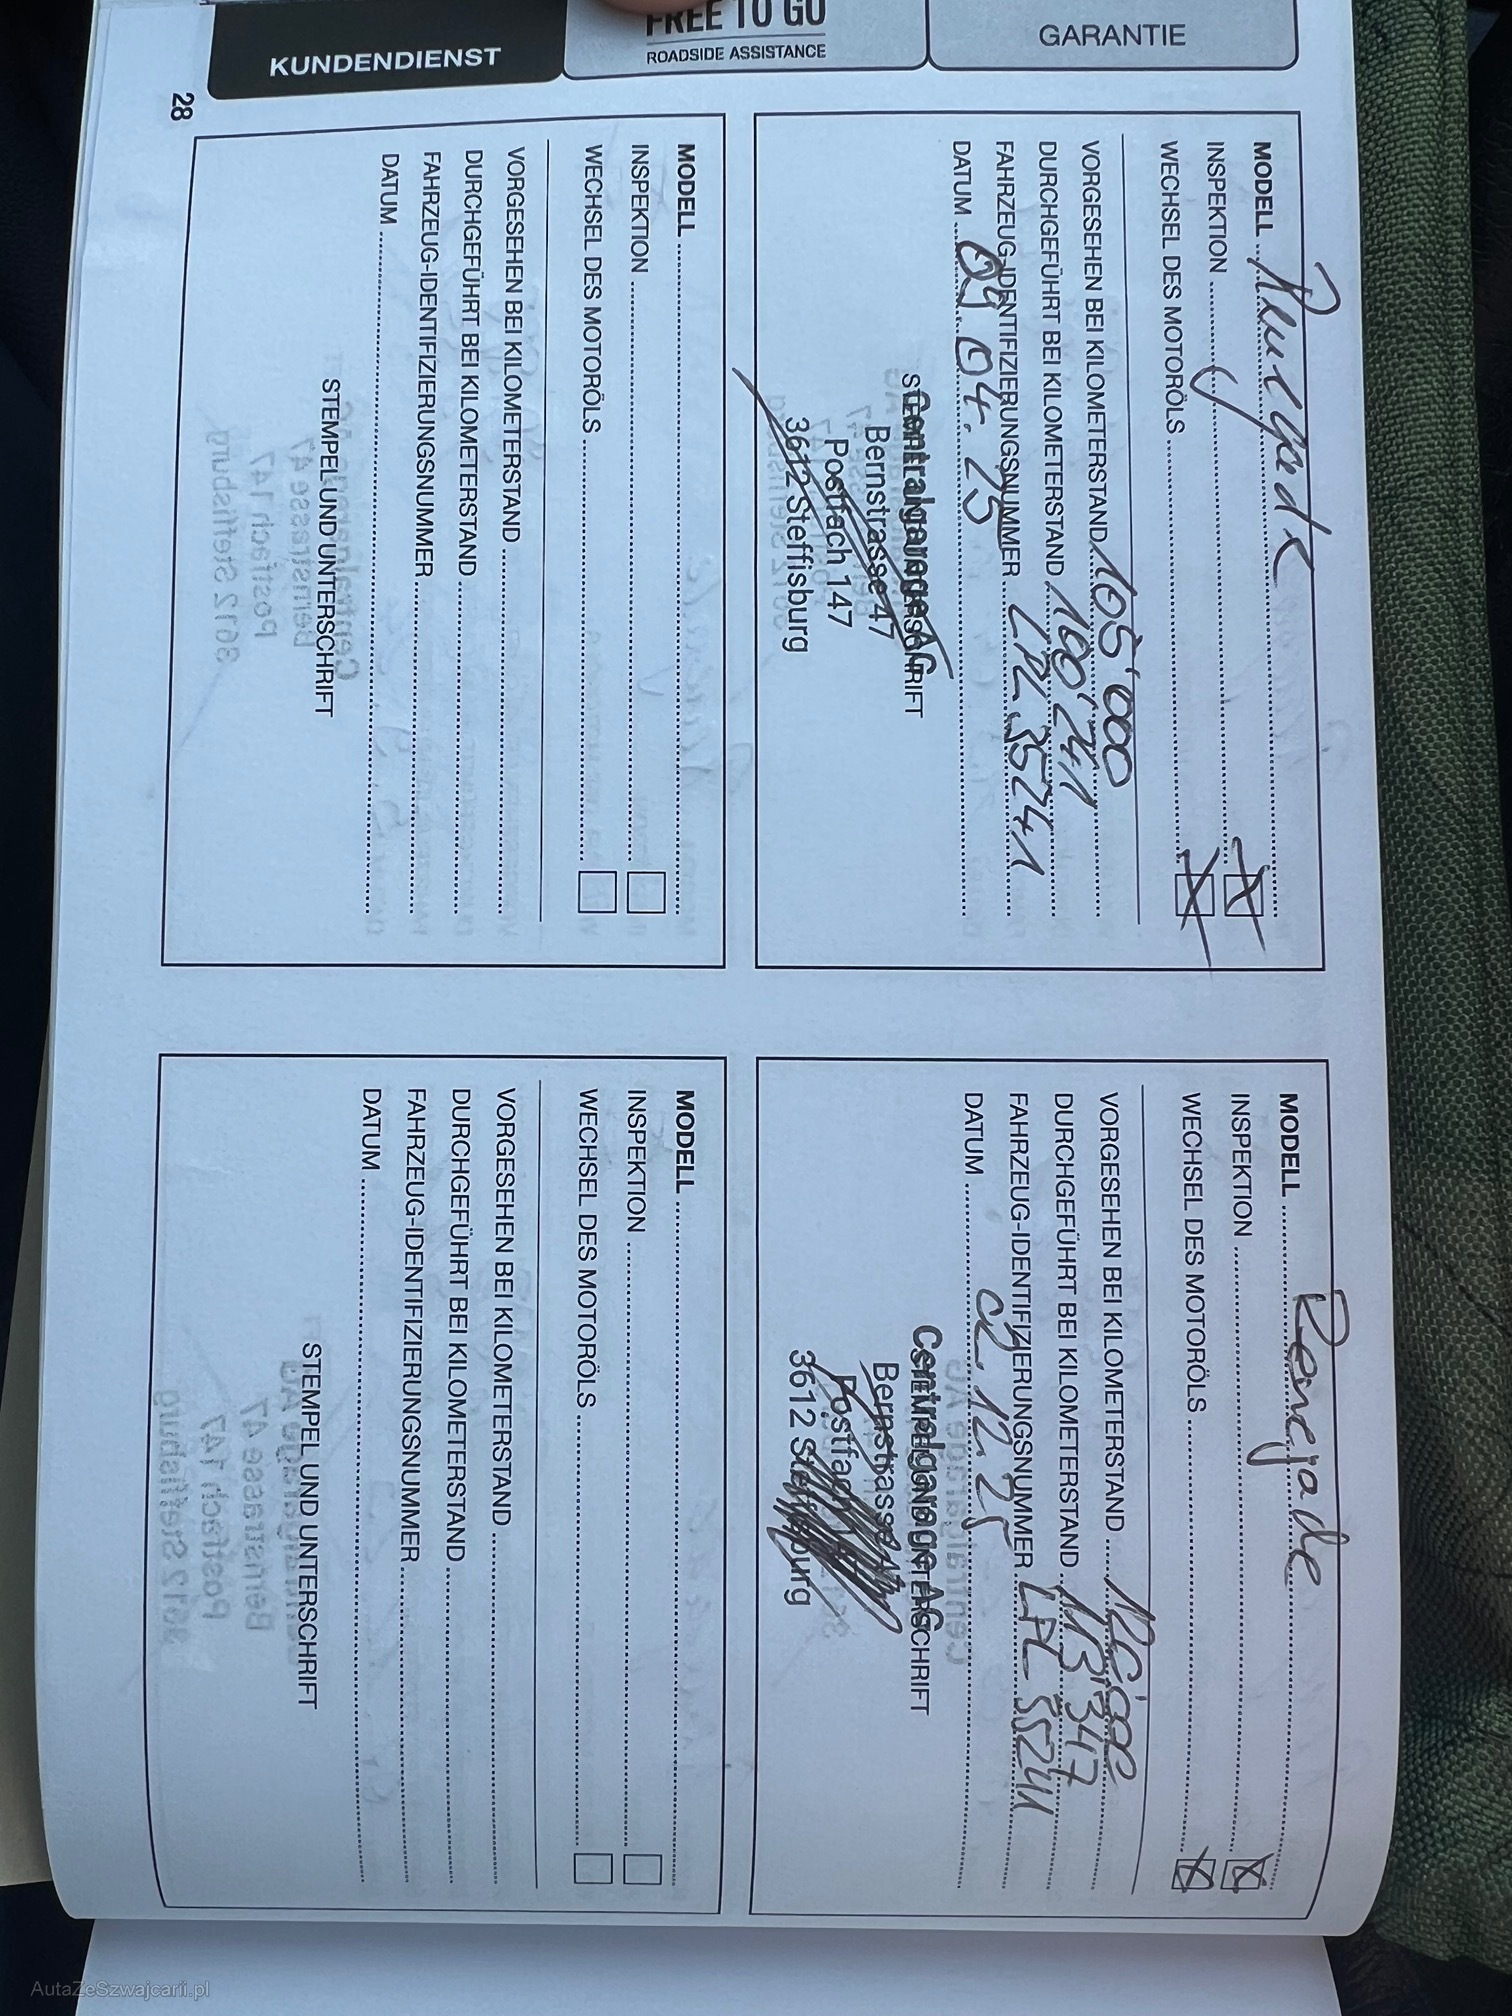 KUNDENDIENST
FREE TO GO
ROADSIDE ASSISTANCE
GARANTIE
MODELL Renegade
INSPEKTION
WECHSEL DES MOTORÖLS
VORGESEHEN BEI KILOMETERSTAND 105'000
DURCHGEFÜHRT BEI KILOMETERSTAND 100'241
FAHRZEUG-IDENTIFIZIERUNGSNUMMER LPL 35241
DATUM 09 04. 25
STEMPEL UND UNTERSCHRIFT
Centralgarage AG
Bernstrasse 47
Postfach 147
3612 Steffisburg
MODELL Renegade
INSPEKTION
WECHSEL DES MOTORÖLS
VORGESEHEN BEI KILOMETERSTAND
DURCHGEFÜHRT BEI KILOMETERSTAND 113'347
FAHRZEUG-IDENTIFIZIERUNGSNUMMER
DATUM 12. 25
STEMPEL UND UNTERSCHRIFT
Centralgarage AG
Bernstrasse 47
Postfach
3612 Steffisburg
MODELL
INSPEKTION
WECHSEL DES MOTORÖLS
VORGESEHEN BEI KILOMETERSTAND
DURCHGEFÜHRT BEI KILOMETERSTAND
FAHRZEUG-IDENTIFIZIERUNGSNUMMER
DATUM
STEMPEL UND UNTERSCHRIFT
MODELL
INSPEKTION
WECHSEL DES MOTORÖLS
VORGESEHEN BEI KILOMETERSTAND
DURCHGEFÜHRT BEI KILOMETERSTAND
FAHRZEUG-IDENTIFIZIERUNGSNUMMER
DATUM
STEMPEL UND UNTERSCHRIFT
28
AutaZeSzwajcarii.pl